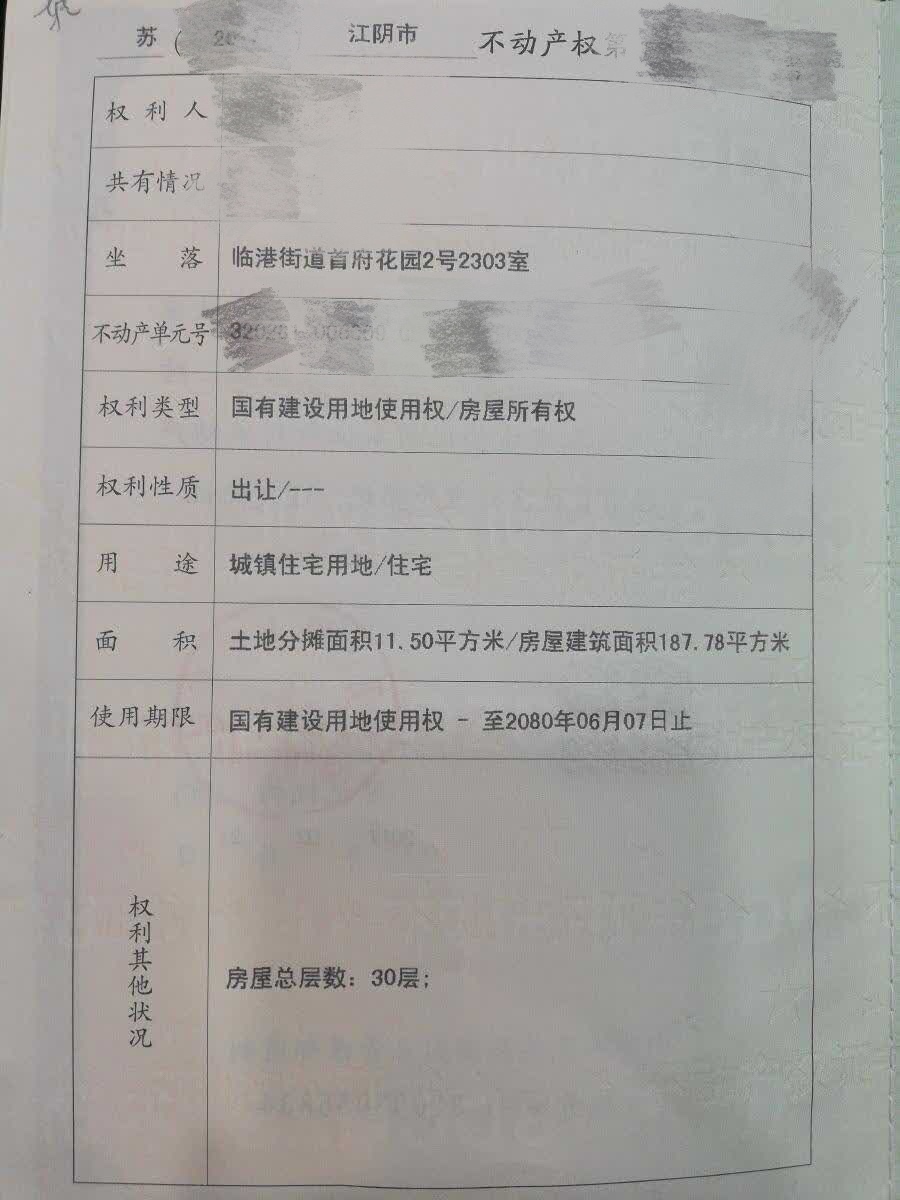 苏 ( 20 江阴市 不动产权第
权利人
共有情况
坐落 临港街道首府花园2号2303室
不动产单元号
权利类型 国有建设用地使用权/房屋所有权
权利性质 出让/---
用途 城镇住宅用地/住宅
面积 土地分摊面积11.50平方米/房屋建筑面积187.78平方米
使用期限 国有建设用地使用权 - 至2080年06月07日止
权利其他状况
房屋总层数：30层;